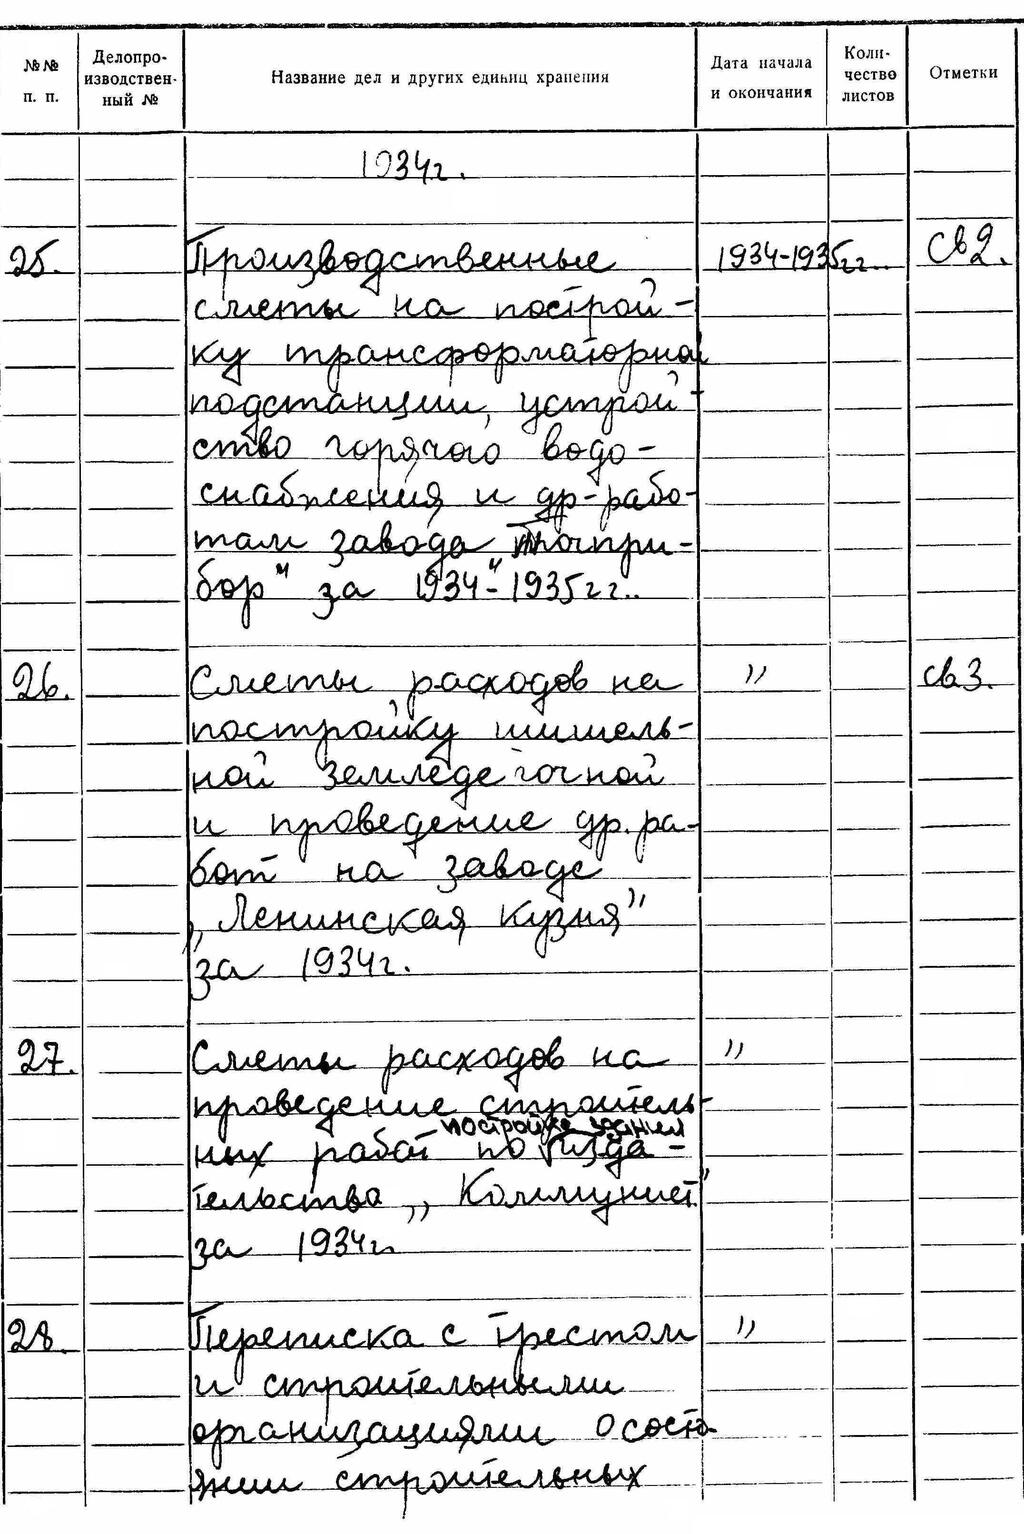 №№ п. п.
Делопро-
изводствен-
ный №
Название дел и других единиц хранения
Дата начала
и окончания
Коли-
чество
листов
Отметки
1934г.
25. Производственные 1934-1935гг. св2.
сметы на построй-
ку трансформаторной
подстанции, устрой-
ство горячего водо-
снабжения и др-рабо-
там завода „Точпри-
бор" за 1934-1935гг..
26. Сметы расходов на " св3.
постройку шишель-
ной земледе точной
и проведение др. ра-
бот на заводе
„Ленинская Кузня"
за 1934г.
27. Сметы расходов на "
проведение строитель-
постройке здания
ных работ по изда-
тельства „Коммунист"
за 1934г.
28. Переписка с трестом "
и строительными
организациями о состо-
янии строительных